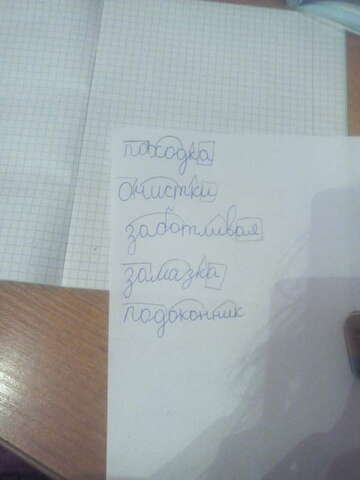 походка
очистки
заботливая
замазка
подоконник